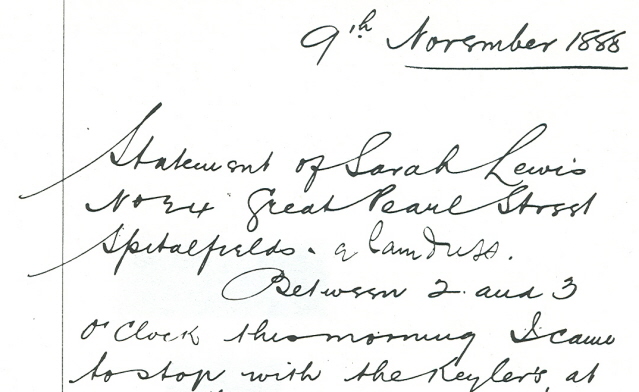 9th November 1888
Statement of Sarah Lewis
No 24 Great Pearl Street
Spitalfields. a laundress.
Between 2 and 3
o'clock this morning I came
to stop with the Keylers, at